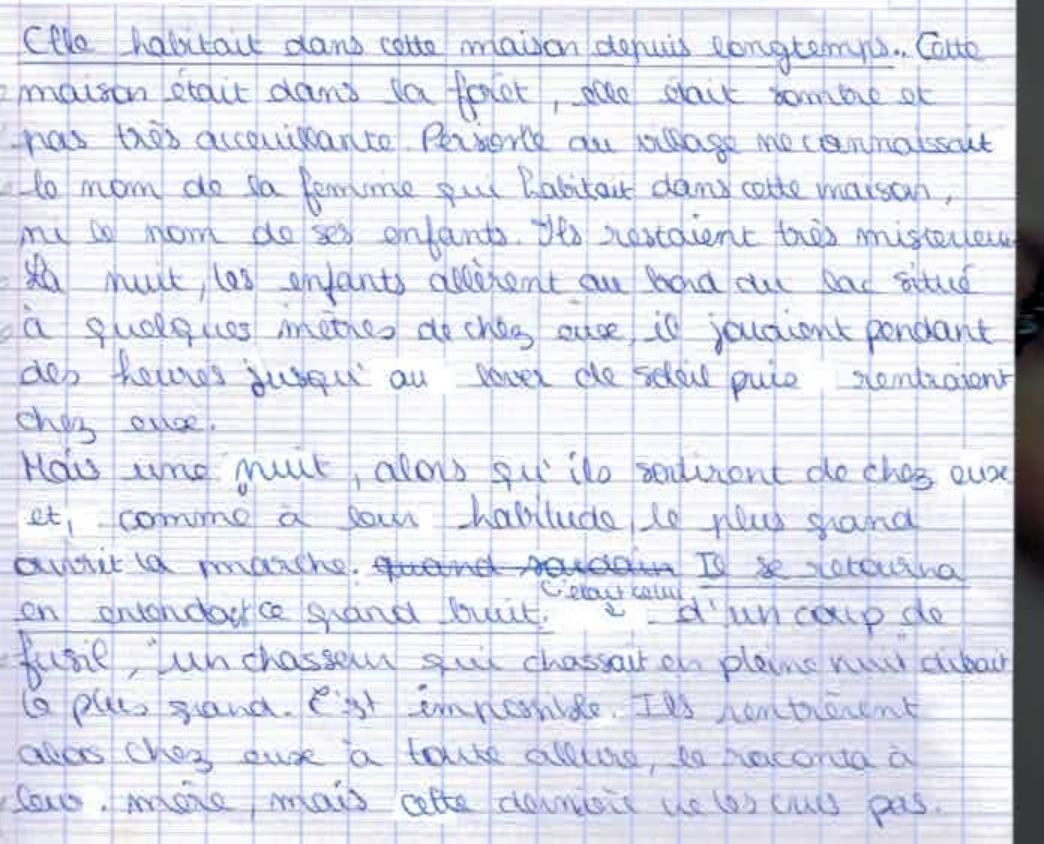 Elle habitait dans cette maison depuis longtemps.. Cette
maison était dans la forêt, elle était sombre et
pas très acceuillante. Personne au village ne connaissait
le nom de la femme qui habitait dans cette maison,
ni le nom de ses enfants. Ils restaient très misterieux
La nuit, les enfants allèrent au bord du lac situé
à quelques mètres de chez eux, il jouaient pendant
des heures jusqu'au lever de soleil puis rentraient
chez eux.
Mais une nuit, alors qu'ils sortirent de chez eux
et, comme à leur habitude, le plus grand
ouvrit la marche. quand soudain Il se retourna
en entendant ce grand bruit. C'était celui d'un coup de
fusil, "un chasseur qui chassait en pleine nuit" disait
le plus grand. C'est impossible. Ils rentrèrent
alors chez eux à toute allure, le raconta à
leur mère, mais cette dernière ne les crus pas.